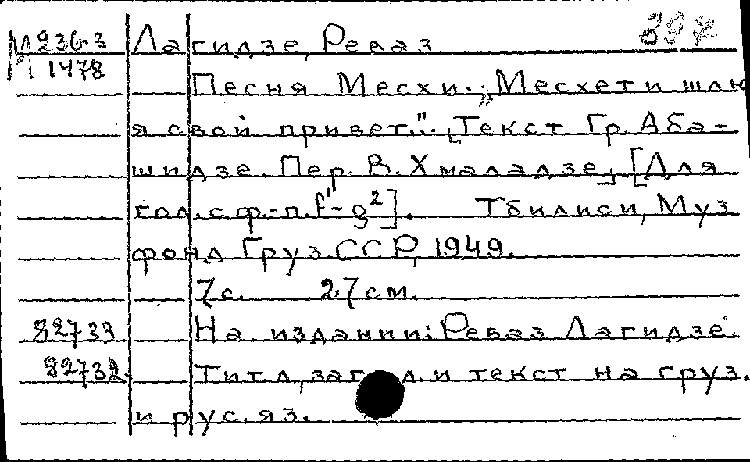 М2363 Лагидзе, Реваз
М1478 Песня Месхи. „Месхети шлю
я свой привет..." [Текст Гр. Аба-
шидзе. Пер. В. Хмаладзе] [Для
гол. с ф.-п. f¹-g²]. Тбилиси, Муз
фонд Груз. ССР, 1949.
7 с. 27 см.
82733 На издании: Реваз Лагидзе.
82732 Титл, загол и текст на груз.
и рус. яз.